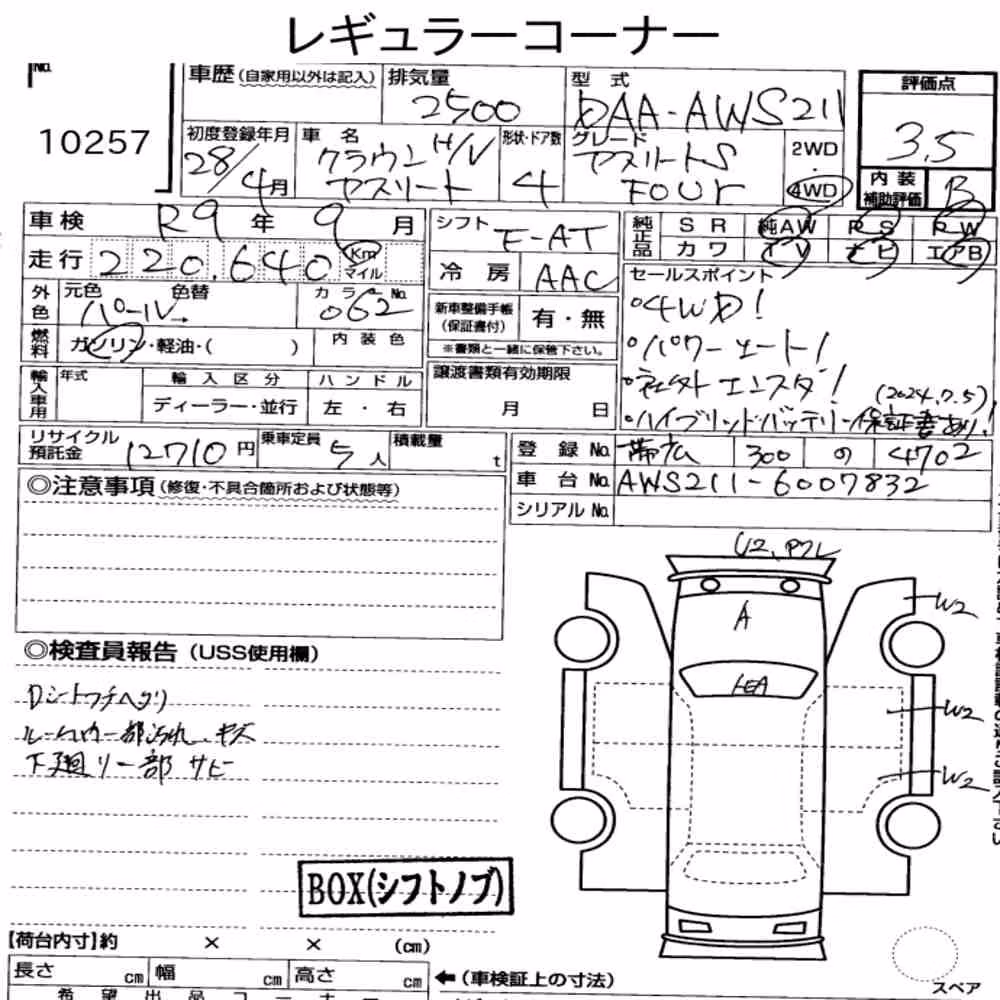 レギュラーコーナー
No.
10257
車歴 (自家用以外は記入)
排気量
2500
型式
DAA-AWS211
評価点
3.5
初度登録年月
28/4月
車名
クラウンH/V
アスリート
形状・ドア数
4
グレード
アスリートS
Four
2WD
4WD
内装
補助評価
B
車検
R9年9月
シフト
F-AT
純正品
SR
純AW
PS
PW
カワ
TV
ナビ
エアB
走行
220,640
Km
マイル
冷房
AAC
セールスポイント
・4WD!
・パワーシート!
・社外エンスタ!
(2024.7.5)
・ハイブリッドバッテリー保証書あり!
外色
元色
色替
パール
カラーNo.
062
新車整備手帳
(保証書付)
有・無
※書類と一緒に保管下さい。
燃料
ガソリン・軽油・( )
内装色
輸入車用
年式
輸入区分
ハンドル
ディーラー・並行
左・右
譲渡書類有効期限
月 日
リサイクル
預託金
12710円
乗車定員
5人
積載量
t
登録No.
帯広
300
の
4702
車台No.
AWS211-6007832
シリアルNo.
◎注意事項 (修復・不具合箇所および状態等)
◎検査員報告 (USS使用欄)
Dシートフチヘタリ
ルーム内一部汚れ、キズ
下廻り一部サビ
U2、Pワレ
A
W2
W2
W2
BOX(シフトノブ)
【荷台内寸】約 × × (cm)
長さ cm
幅 cm
高さ cm
(車検証上の寸法)
スペア
希望出品コーナー